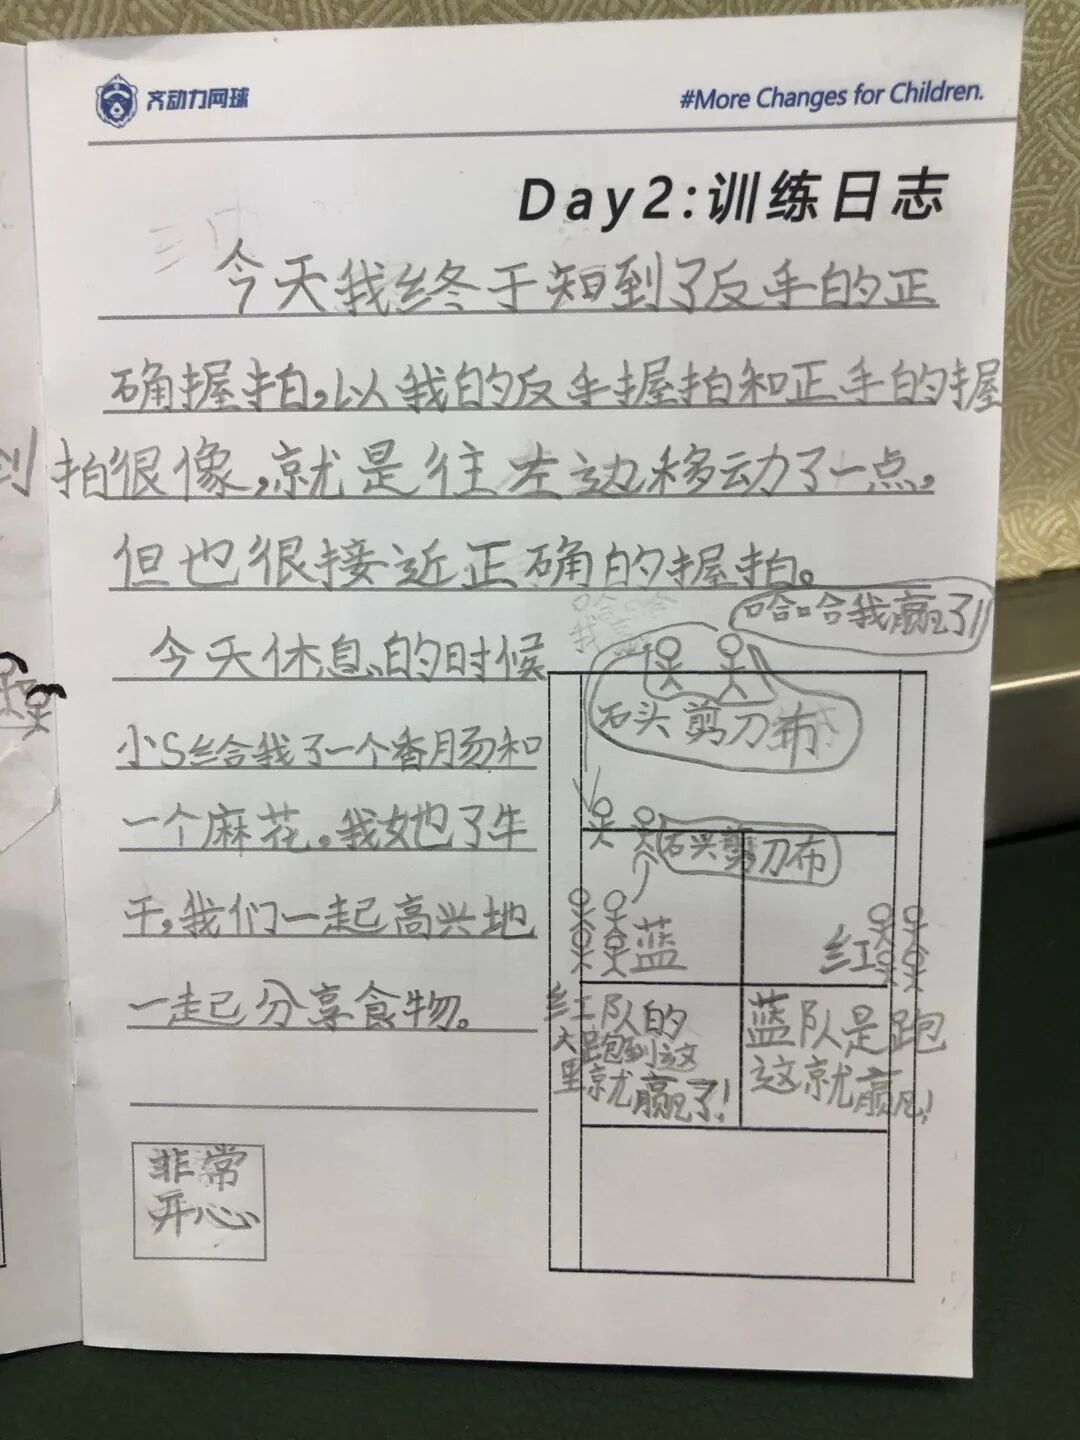 齐动力网球
#More Changes for Children.
Day2:训练日志
今天我终于知到了反手的正
确握拍,以我的反手握拍和正手的握
拍很像,就是往左边移动了一点,
但也很接近正确的握拍。
哈哈我赢了!!
今天休息的时候
石头剪刀布
小S给我了一个香肠和
一个麻花。我她了牛
石头剪刀布
干,我们一起高兴地
蓝
红
一起分享食物。
红队的
大跑到这
里就赢了!
蓝队是跑
这就赢了!
非常
开心